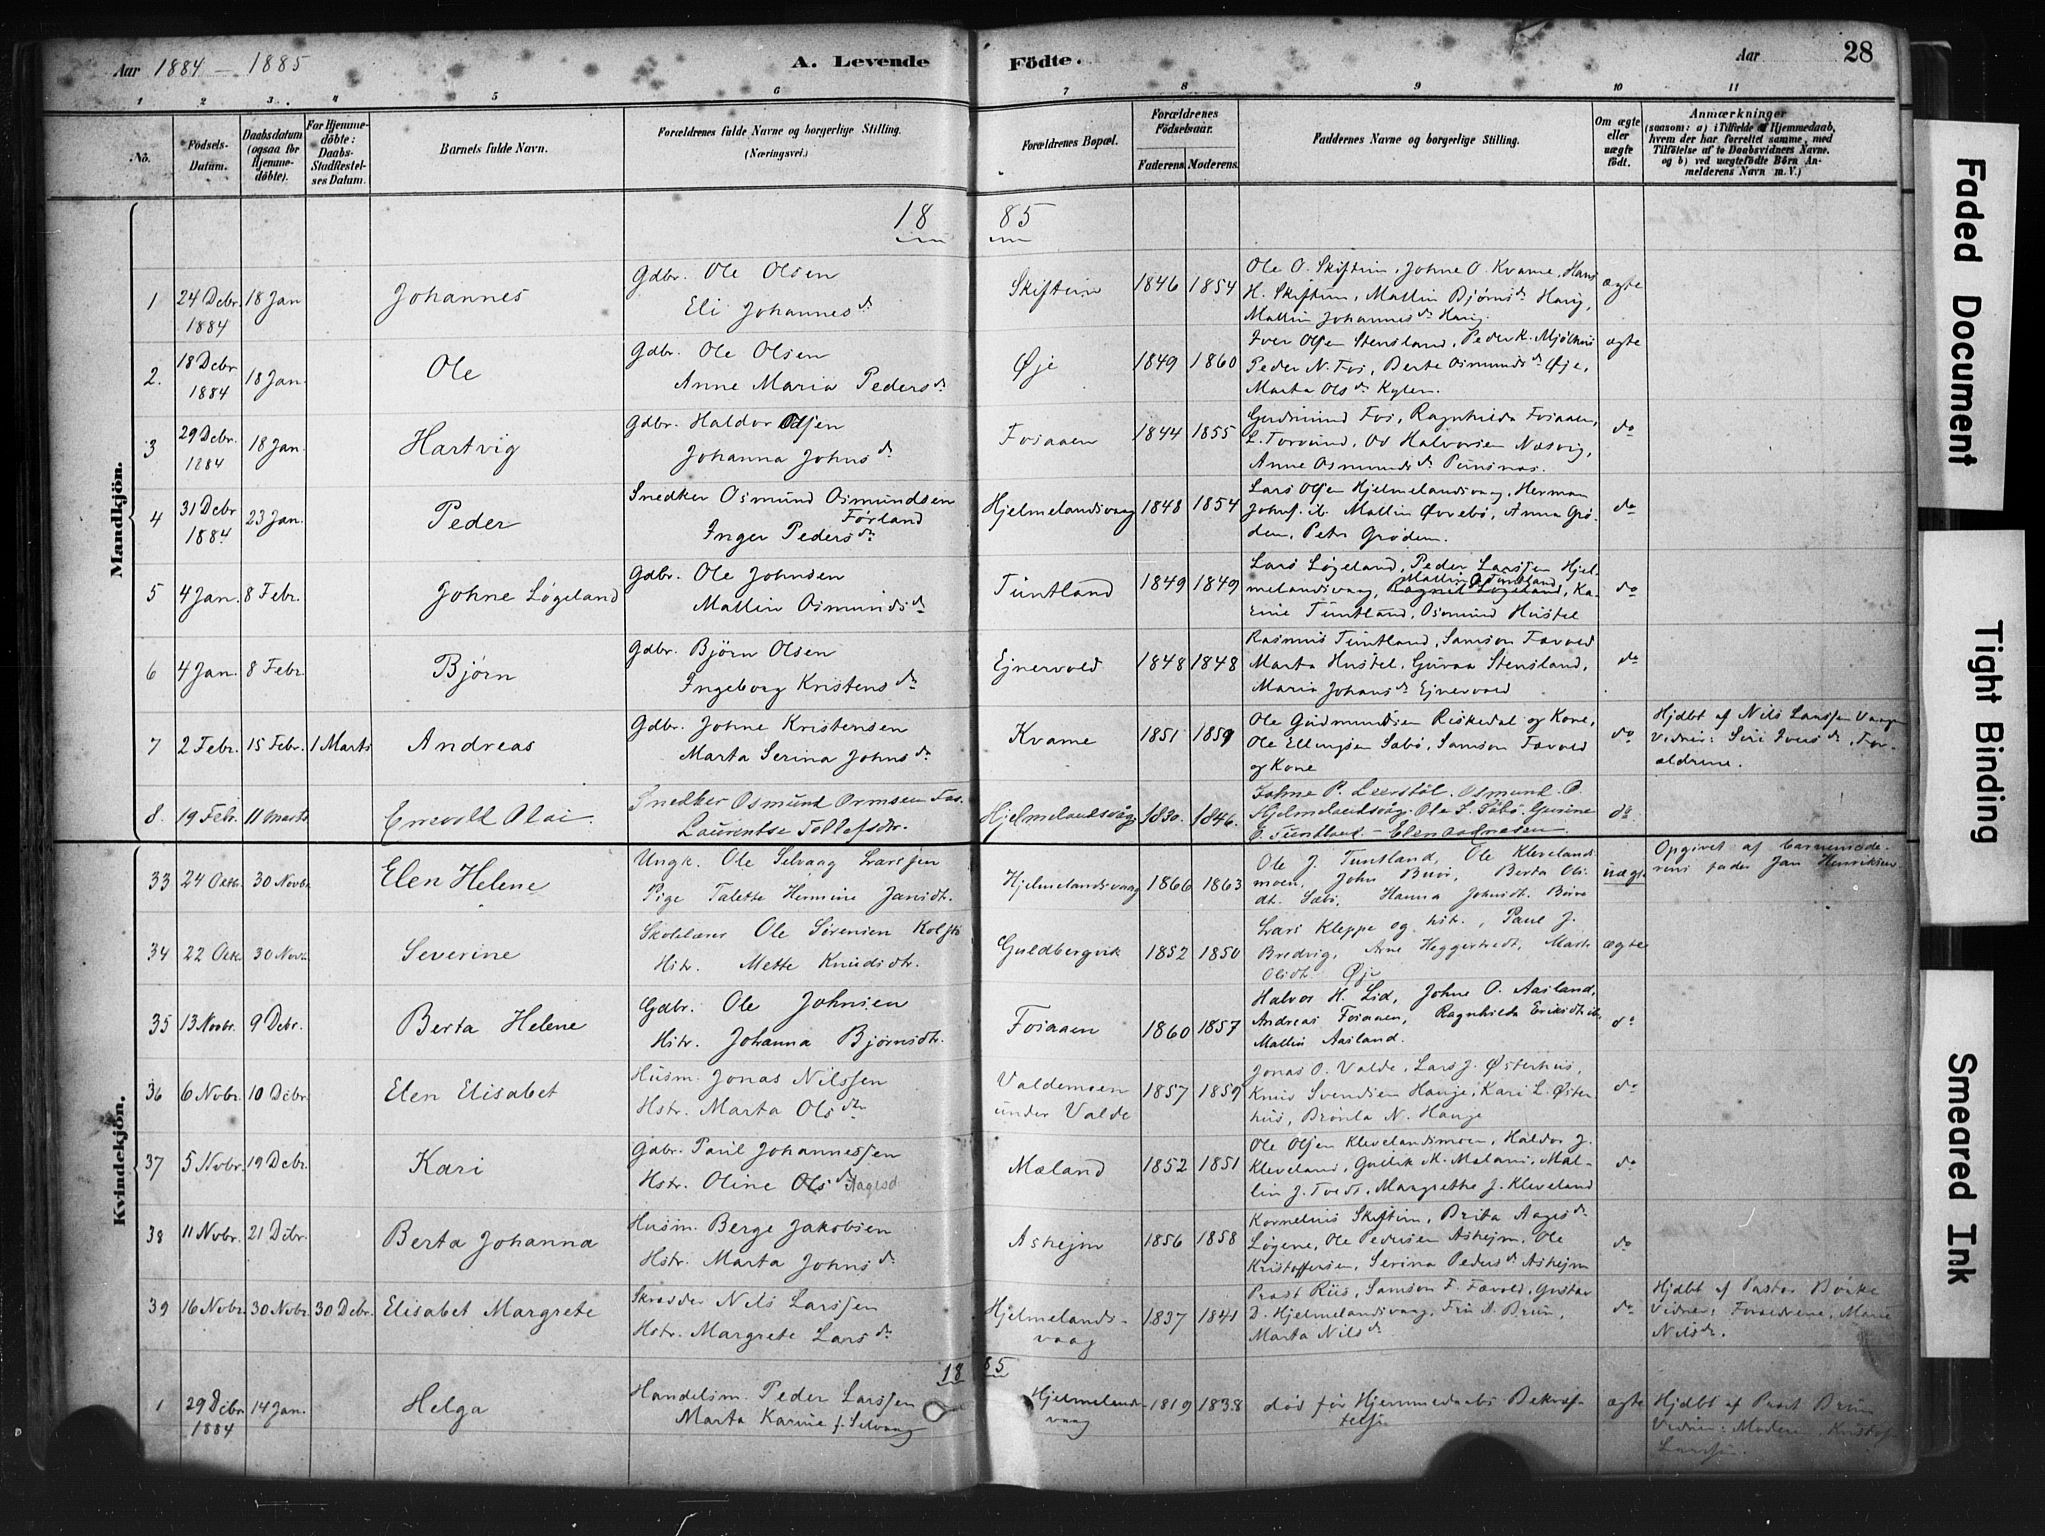 Aar 1884 – 1885
A. Levende Födte.
Aar 28
1 2 3 4 5 6 7 8 9 10 11
No.
Födsels-Datum.
Daabsdatum (ogsaa for Hjemme-döbte).
For Hjemme-döbte: Daabs-Stadfæstel-ses Datum.
Barnets fulde Navn.
Forældrenes fulde Navne og borgerlige Stilling.
(Næringsvei.)
Forældrenes Bopæl.
Forældrenes Födselsaar.
Faderens. Moderens.
Faddernes Navne og borgerlige Stilling.
Om ægte eller uægte födt.
Anmærkninger
(saasom: a) i Tilfælde af Hjemmedaab, hvem der har forrettet samme, med Tilföielse af to Daabsvidners Navne, og b) ved uægtefödte Börn An-melderens Navn m. V.)
Mandkjön.
1885
1 24 Debr 1884 18 Jan Johannes Gdbr. Ole Olsen
Eli Johannesdr Skiftun 1846 1854 Ole O. Skiftun, Johne O. Kvame, Hans
H. Skiftun, Mallin Bjørnsdr Haug,
Mallin Johannesdr Haug. ægte
2. 18 Debr 1884 18 Jan. Ole Gdbr. Ole Olsen
Anne Maria Pedersdr Øje 1849 1860 Iver Olsen Stensland, Peder K. Mjølhus
Peder N. Fos, Berte Osmundsdr Øje,
Marta Olsdr Kylen. ægte
3 29 Debr. 1884 18 Jan. Hartvig Gdbr. Haldor Olsen
Johanna Johnsdr Fosaaen 1844 1855 Gudmund Fos, Ragnhilda Fosaaen,
Halvorsen Næsvig,
Anne Osmundsdr do
4 31 Debr 1884 23 Jan. Peder Snedker Osmund Osmundsen
Førland
Inger Pedersdr Hjelmelandsvaag 1848 1854 Lars Olsen Hjelmelandsvaag, Herman
Mallin Øvrebø, Anna Grø-
dem, Petr Grødem. do
5 4 Jan. 8 Febr. Johne Løgeland Gdbr. Ole Johnsen
Mallin Osmundsdr Tuntland 1849 1849 Lars Løgeland, Peder Larssen Hjel-
Mallin O. Tuntland,
melandsvaag, Ragnil Løgeland, Ka-
rine Tuntland, Osmund Hustel do
6 4 Jan. 8 Febr Bjørn Gdbr. Bjørn Olsen
Ingeborg Kristensdr Ejnervold 1848 1848 Rasmus Tuntland, Samson Fævold
Marta Hustel, Guraa Stensland,
Maria Johansdr Ejnervold do
7 2 Febr. 15 Febr. 1 Marts Andreas Gdbr. Johne Kristensen
Marta Serina Johnsdr Kvame 1851 1859 Ole Gudmundsen Riskedal og Kone,
Ole Ellingsen Sæbø, Samson Fævold
og Kone do Hjdbt af Nils Larssen Vaagen
Vidner: Siri Iversdr, For-
ældrene.
8. 19 Febr. 11 Marts Enevold Olai. Snedker Osmund Ormsen Fos.
Laurentse Tollefsdr. Hjelmelandsvåg 1830. 1846. Johne P. Osmund O.
Hjelmelandsvåg. Ole Sæbø. Gurine
O. Tuntland – do
Kvindekjön.
33 24 Oktr. 30 Novbr Elen Helene Ungk. Ole Selvaag Larssen
Pige Talette Hermine Jansdtr. Hjelmelandsvaag 1866 1863 Ole J. Tuntland, Ole Klevelands-
moen, John Berta Ols-
dt. Sæbø, Hanna Johnsdt. uægte Opgivet af barnemode-
rens fader Jan Henriksen
34 22 Oktr. 30 Novbr Severine Skolelærer Ole Sørensen Kolstø
Hstr. Mette Knudsdtr. Guldbergvik 1852 1850 Lars Kleppe og hstr., Paul J.
Bredvig, Arne Marta
Olsdtr. Øje ægte
35 13 Novbr. 9 Debr. Berta Helene Gdbr. Ole Johnsen
Hstr. Johanna Bjørnsdtr. Fosaaen 1860 1857 Halvor H. Lid, Johne O. Aasland,
Andreas Fosaaen, Ragnhilda Eriksdtr
Mallin Aasland. do
36 6 Novbr. 10 Debr. Elen Elisabet Husm. Jonas Nilssen
Hstr. Marta Olsdtr Valdemoen
under Valde 1857 1859 Jonas O. Valde, Lars J. Østerhus,
Knud Svendsen Hauge, Kari L. Øster-
hus, Brønla N. Hauge do
37 5 Novbr. 19 Debr. Kari Gdbr. Paul Johannessen
Hstr. Oline Olsdr Aagesd Mæland 1852 1851 Ole Olsen Klevelandsmoen, Haldor J.
Kleveland, Gullik M. Mæland, Mal-
lin J. Tveit, Margrethe J. Kleveland do
38 11 Novbr. 21 Debr. Berta Johanna Husm. Berge Jakobsen
Hstr. Marta Johnsdr Ashejm 1856 1858 Kornelius Skiftun, Brita Aagesdr
Løgene, Ole Pedersen Ashejm, Ole
Kristoffersen, Serina Pedersdr Ashejm do
39 16 Novbr. 30 Novbr. 30 Debr. Elisabet Margrete Skrædder Nils Larssen
Hstr. Margrete Larsdr Hjelmelands-
vaag 1837 1841 Prost Riis, Samson F. Fævold, Gustav
D. Hjelmelandsvaag, Fru A. Brun,
Marta Nilsdr do Hjdbt af Pastor
Vidner: Forældrene, Marie
Nilsdr.
1885
1 29 Debr 1884 14 Jan. Helga Handelsm. Peder Larssen
Marta Karine f. Selvaag Hjelmelands-
vaag 1819 1838 død før Hjemmedaabs Bekræf-
telse ægte Hjdbt af Prost Brun
Vidner: Moderen, Kristof
Larssen.
Faded Document
Tight Binding
Smeared Ink